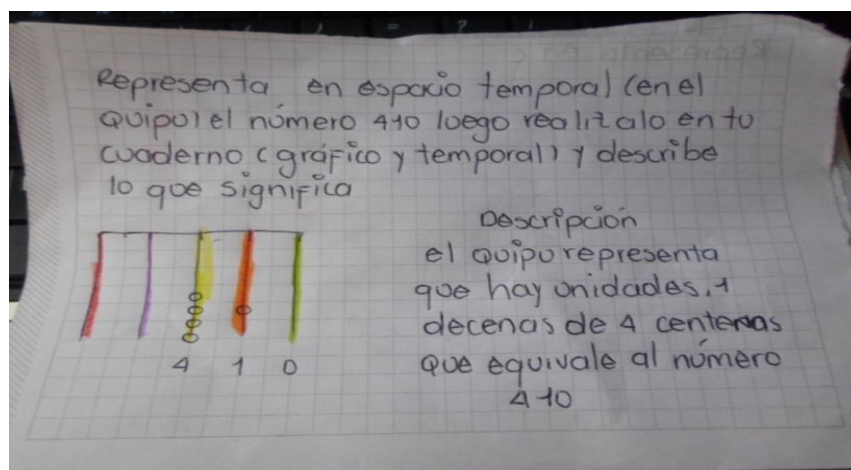 Representa en espacio temporal (en el
Quipu) el número 410 luego realizalo en tu
cuaderno (gráfico y temporal) y describe
lo que significa
Descripción
el quipu representa
que hay unidades, 1
decenas de 4 centenas
que equivale al número
410
4 1 0